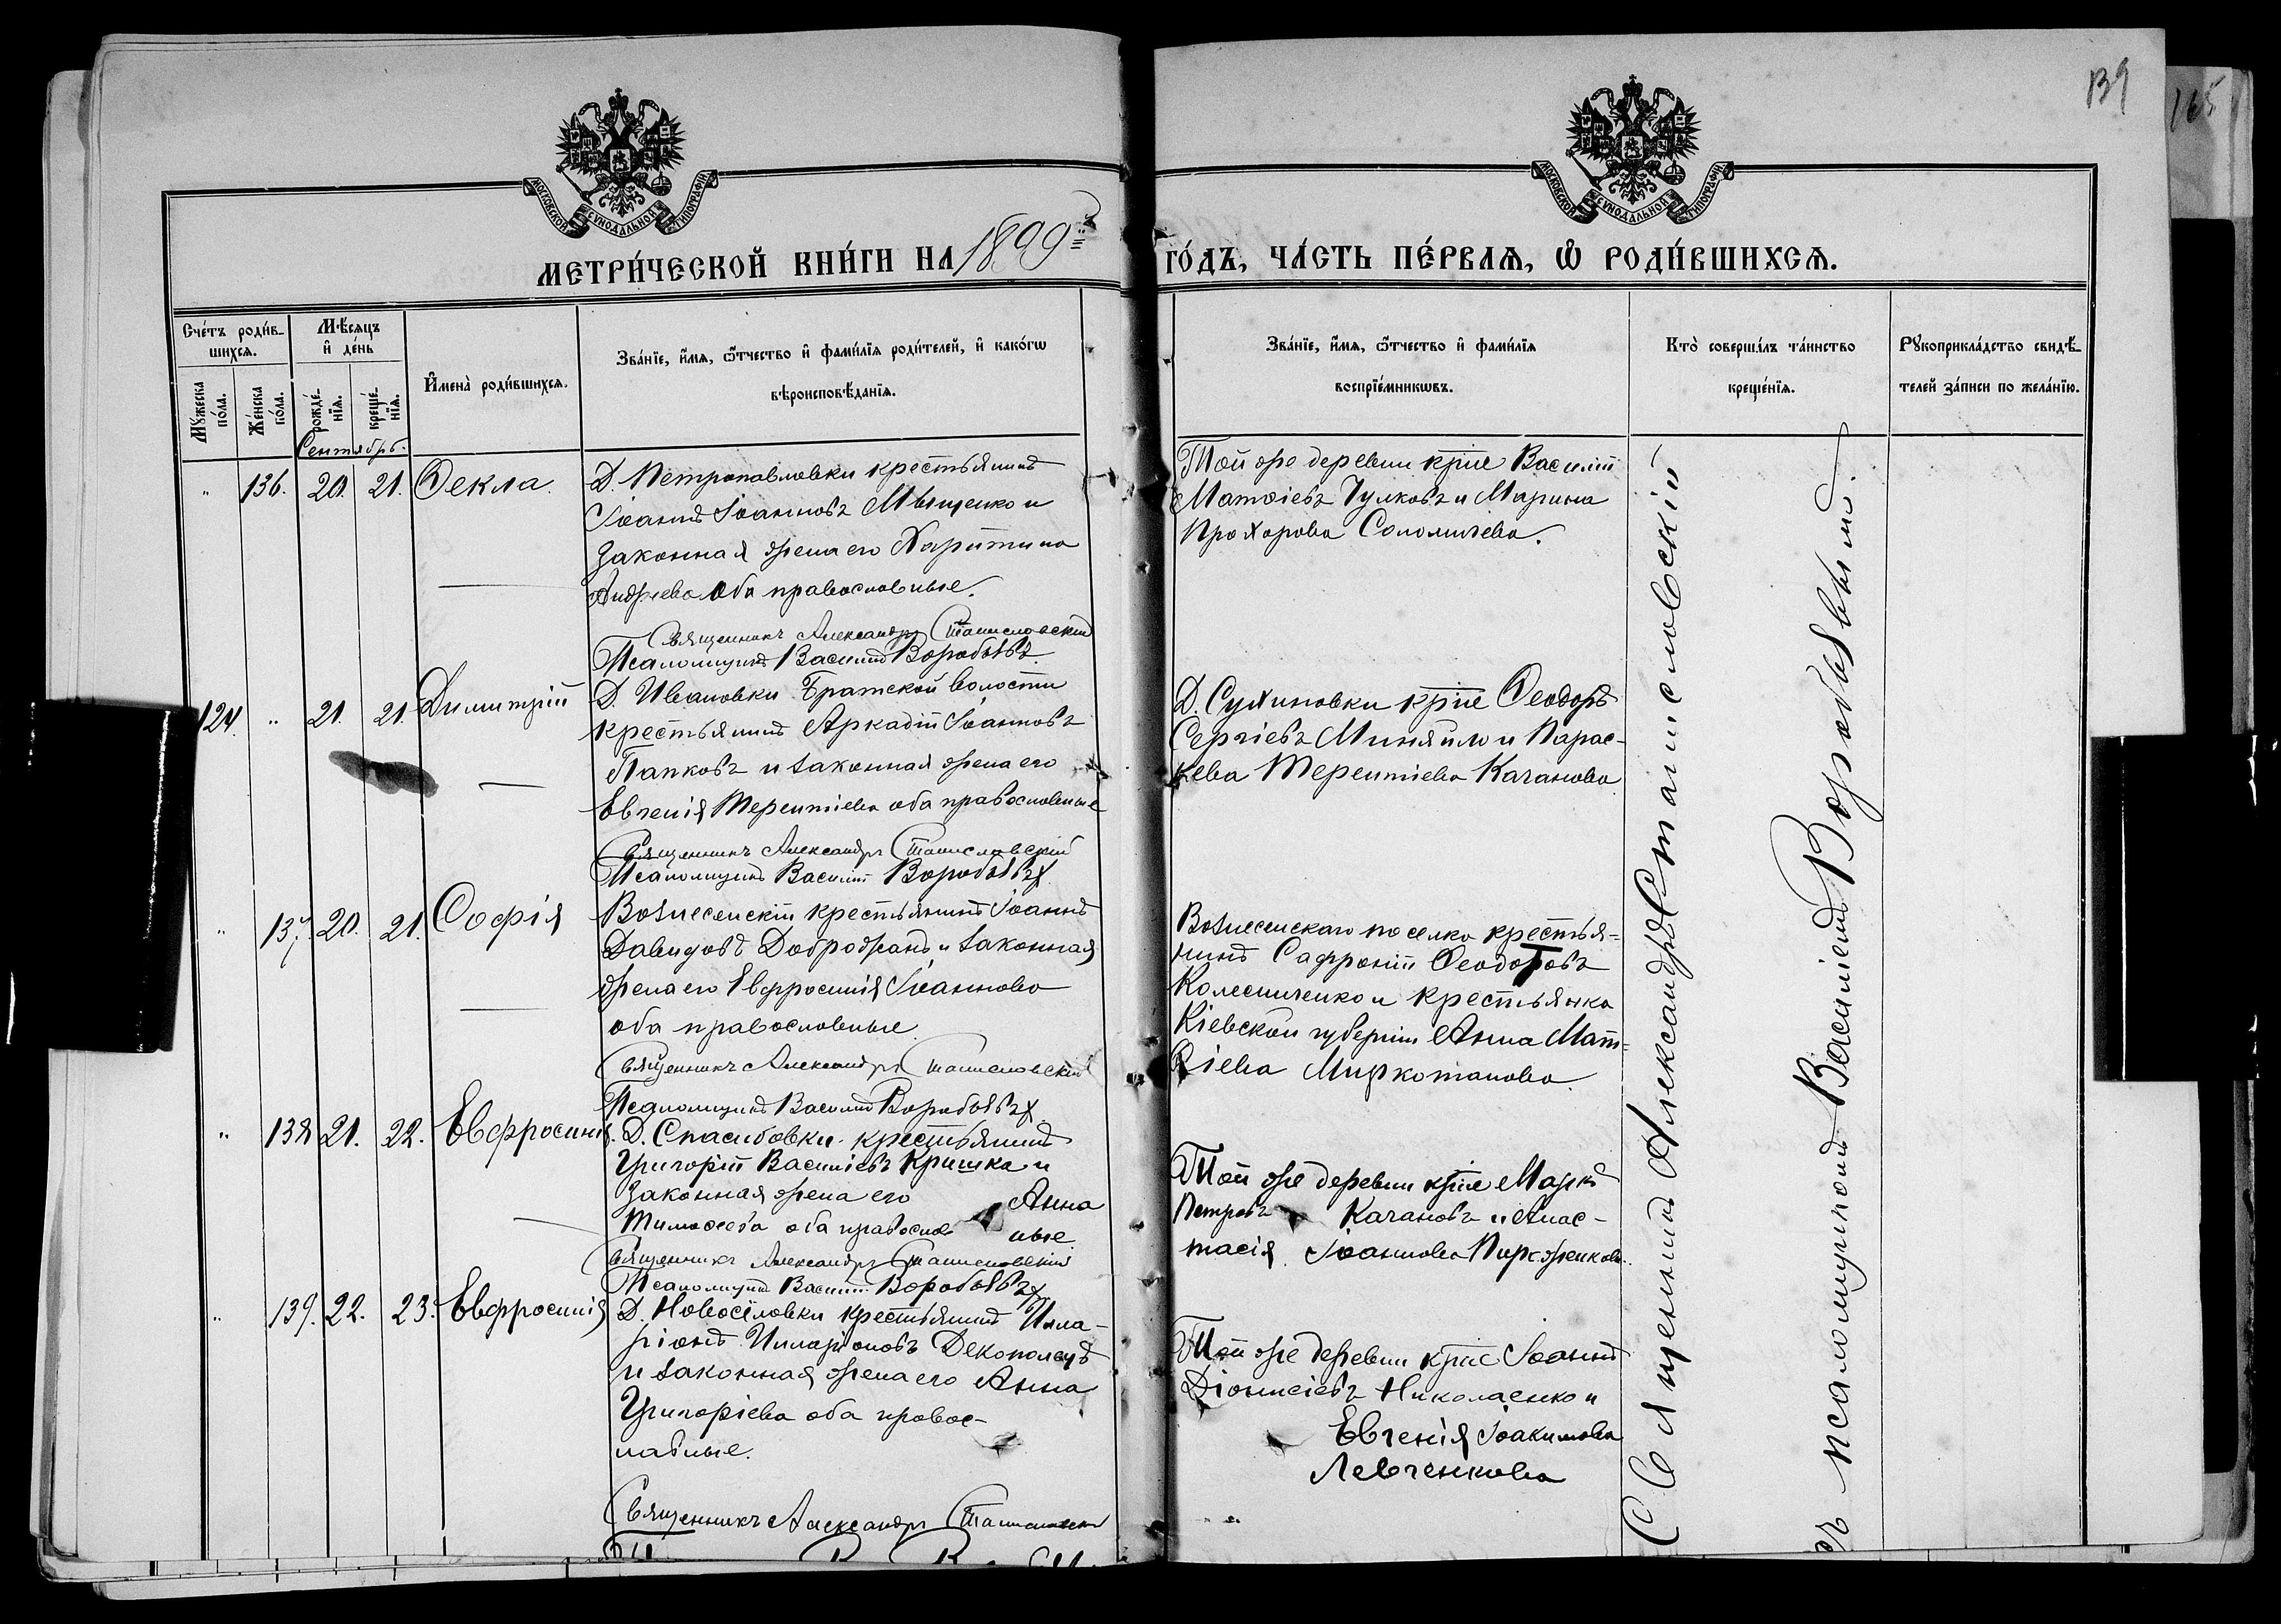 139
165
МОСКОВСКОЙ СѴНОДАЛЬНОЙ ТИПОГРАФІИ
МОСКОВСКОЙ СѴНОДАЛЬНОЙ ТИПОГРАФІИ
МЕТРИ́ЧЕСКОЙ КНИ́ГИ НА 1899й ГО́ДЪ, ЧА́СТЬ ПЕ́РВАЯ, Ѡ҆ РОДИ́ВШИХСЯ.
Сче́тъ роди́в-
шихся.
Мѣ́сяцъ
и҆ де́нь
Мꙋ́жеска по́ла.
Же́нска по́ла.
рожде́-
нїѧ.
креще́-
нїѧ.
И҆мена̀ роди́вшихся.
Зва́нїе, и҆́мѧ, ѻ҆́тчество и҆ фамі́лїѧ роди́телей, и҆ како́гѡ
вѣроисповѣ́данїѧ.
Зва́нїе, и҆́мѧ, ѻ҆́тчество и҆ фамі́лїѧ
воспрїе́мникѡвъ.
Кто̀ соверша́лъ та́инство
креще́нїѧ.
Рꙋкоприкла́дство свидѣ́-
телей за́писи по жела́нїю.
Сентябрь.
" 136. 20. 21. Ѳекла.
Д. Петропавловки крестьянинъ
Іоаннъ Іоанновъ Мѣщенко и
законная жена его Харитина
Андреева оба православные.
Священникъ Александръ Станиславскій
Псаломщикъ Василій Воробьевъ
Той же деревни крне Василій
Матѳіевъ Чулковъ и Марина
Прохорова Соломичева.
124. " 21. 21. Димитрій
Д. Ивановки Братской волости
крестьянинъ Аркадій Іоанновъ
Папковъ и законная жена его
Евгенія Терентіева оба православные
Священникъ Александръ Станиславскій
Псаломщикъ Василій Воробьевъ
Д. Сухиновки крне Ѳеодоръ
Сергіевъ Миняйло и Парас-
кева Терентіева Качанова
" 137. 20. 21. Софія
Вознесенскій крестьянинъ Іоаннъ
Давидовъ Доброжанъ и законная
жена его Евфросинія Іоаннова
оба православные
Священникъ Александръ Станиславскій
Псаломщикъ Василій Воробьевъ
Вознесенскаго поселка крестья-
нинъ Сафроній Ѳеодоровъ
Колесниченко и крестьянка
Кіевской губерніи Анна Мат-
ѳіева Миркотанова
" 138 21. 22. Евфросинія.
Д. Спасибовки крестьянинъ
Григорій Василіевъ Кришка и
законная жена его Анна
Тимоѳеева оба православные
Священникъ Александръ Станиславскій
Псаломщикъ Василій Воробьевъ
Той же деревни крне Маркъ
Петровъ Качановъ и Анас-
тасія Іоаннова
" 139. 22. 23. Евфросинія
Д. Новосіловки крестьянинъ Илла-
ріонъ Илларіоновъ
и законная жена его Анна
Григоріева оба правос-
лавные.
Священникъ Александръ Станиславскій
Той же деревни крне Іоаннъ
Діонисіевъ Николаенко и
Евгенія Іоакимова
Левченкова
Священникъ Александръ Станиславскій
съ псаломщикомъ Василіемъ Воробьевымъ.